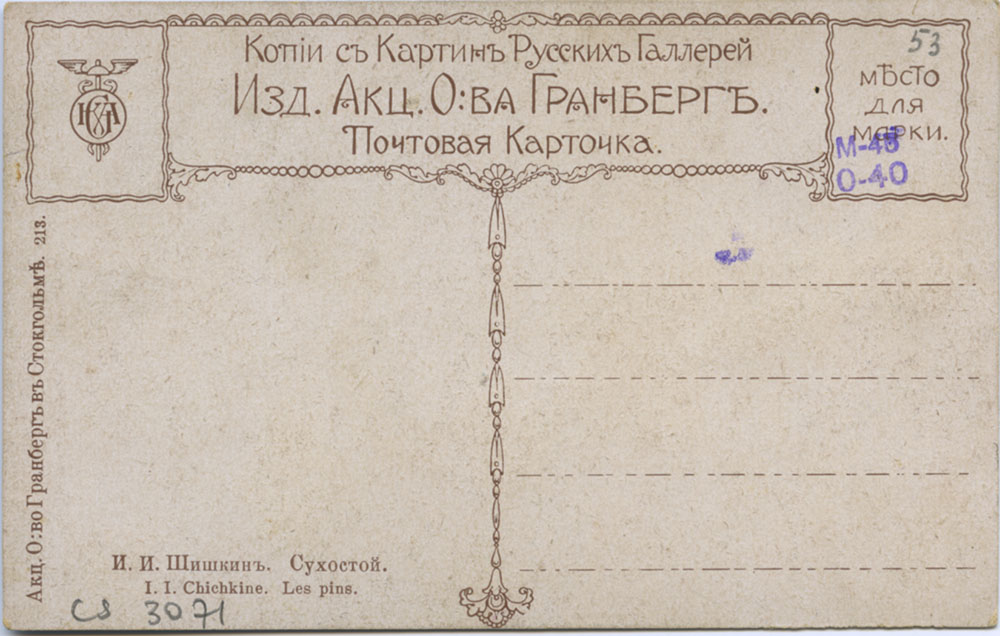 Копіи съ Картинъ Русскихъ Галлерей
Изд. Акц. О:ва Гранбергъ.
Почтовая Карточка.
53
мѣсто
для
марки.
М-45
О-40
Акц. О:во Гранбергъ въ Стокгольмѣ. 213.
И. И. Шишкинъ. Сухостой.
I. I. Chichkine. Les pins.
CS 3071